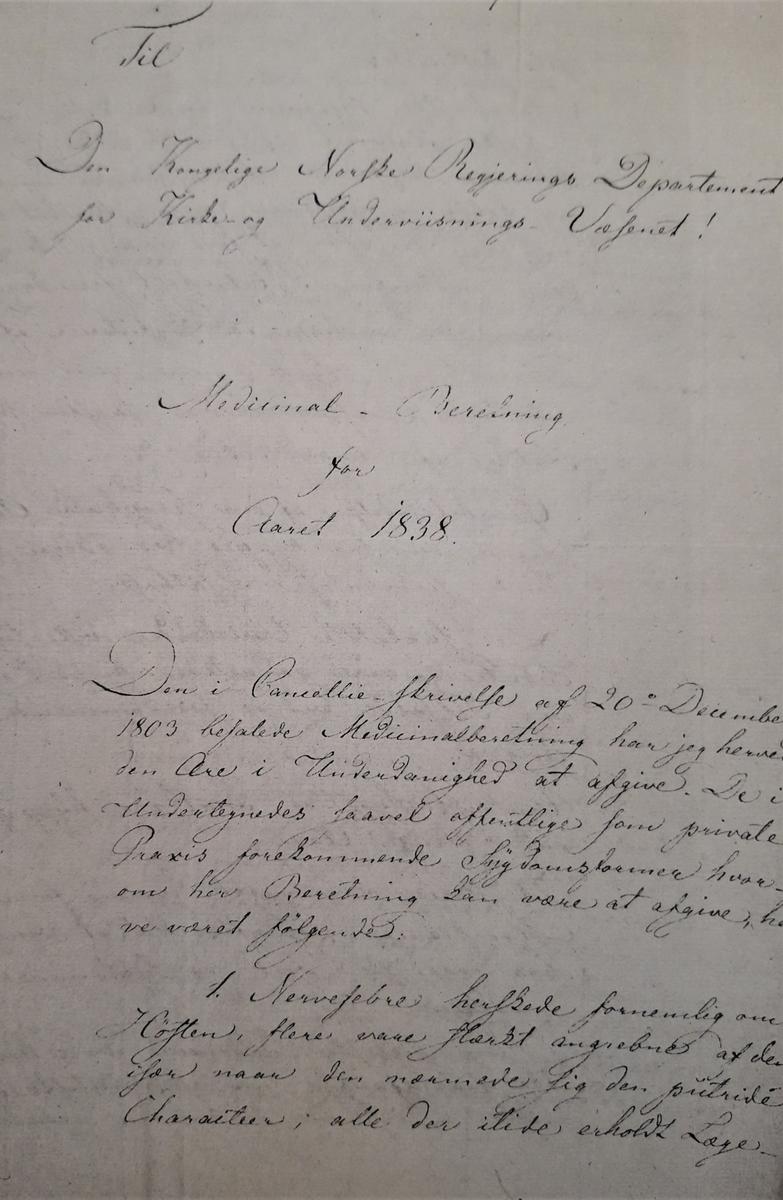 Til
Den Kongelige Norske Regjerings Departement
for Kirke- og Underviisnings- Væsenet!
Medicinal - Beretning
for
Aaret 1838.
Den i Cancellie-skrivelse af 20de Decembe
1803 befalede Medicinalberetning har jeg herved
den Ære i Underdanighed at afgive. De i
Undertegnedes saavel offentlige som private
Praxis forekommende Sygdomsformer hvor-
om her Beretning kan være at afgive, ha
ve været følgende:
1. Nervefebre herskede fornemlig om
Høsten, flere vare stærkt angrebne af den
især naar den nærmede sig den putride
Characteer; alle der itide erholdt Læge-